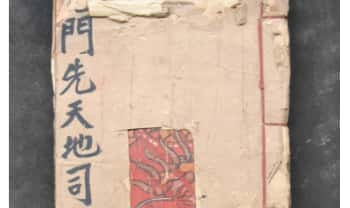 門先天地司